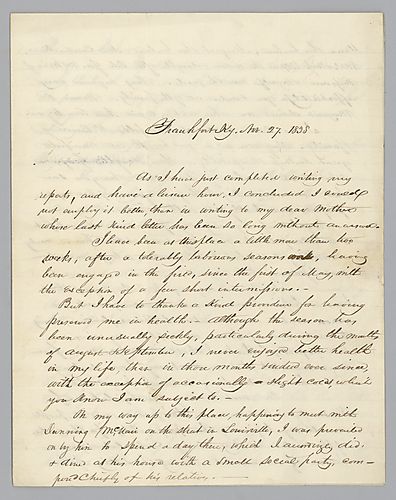 Frankfort Ky. Nov. 27. 1838
As I have just completed writing my
reports, and have a leisure hour, I concluded I could
not employ it better than in writing to my dear Mother
whose last kind letter has been so long without an answer.
I have been at this place a little more than two
weeks, after a tolerably laborious season, having
been engaged in the field, since the first of May, with
the exception of a few short intermissions. -
But I have to thank a kind providence for having
preserved me in health. - although the season has
been unusually sickly, particularly during the months
of August & September, I never enjoyed better health
in my life, than in those months indeed ever since,
with the exception of occasionally a slight cold, which
you know I am subject to. -
On my way up to this place, happening to meet with
McNair on the street in Louisville, I was prevailed
on by him to spend a day there, which I accordingly did.
& dined at his house with a small social party, com-
posed chiefly of his relatives. -